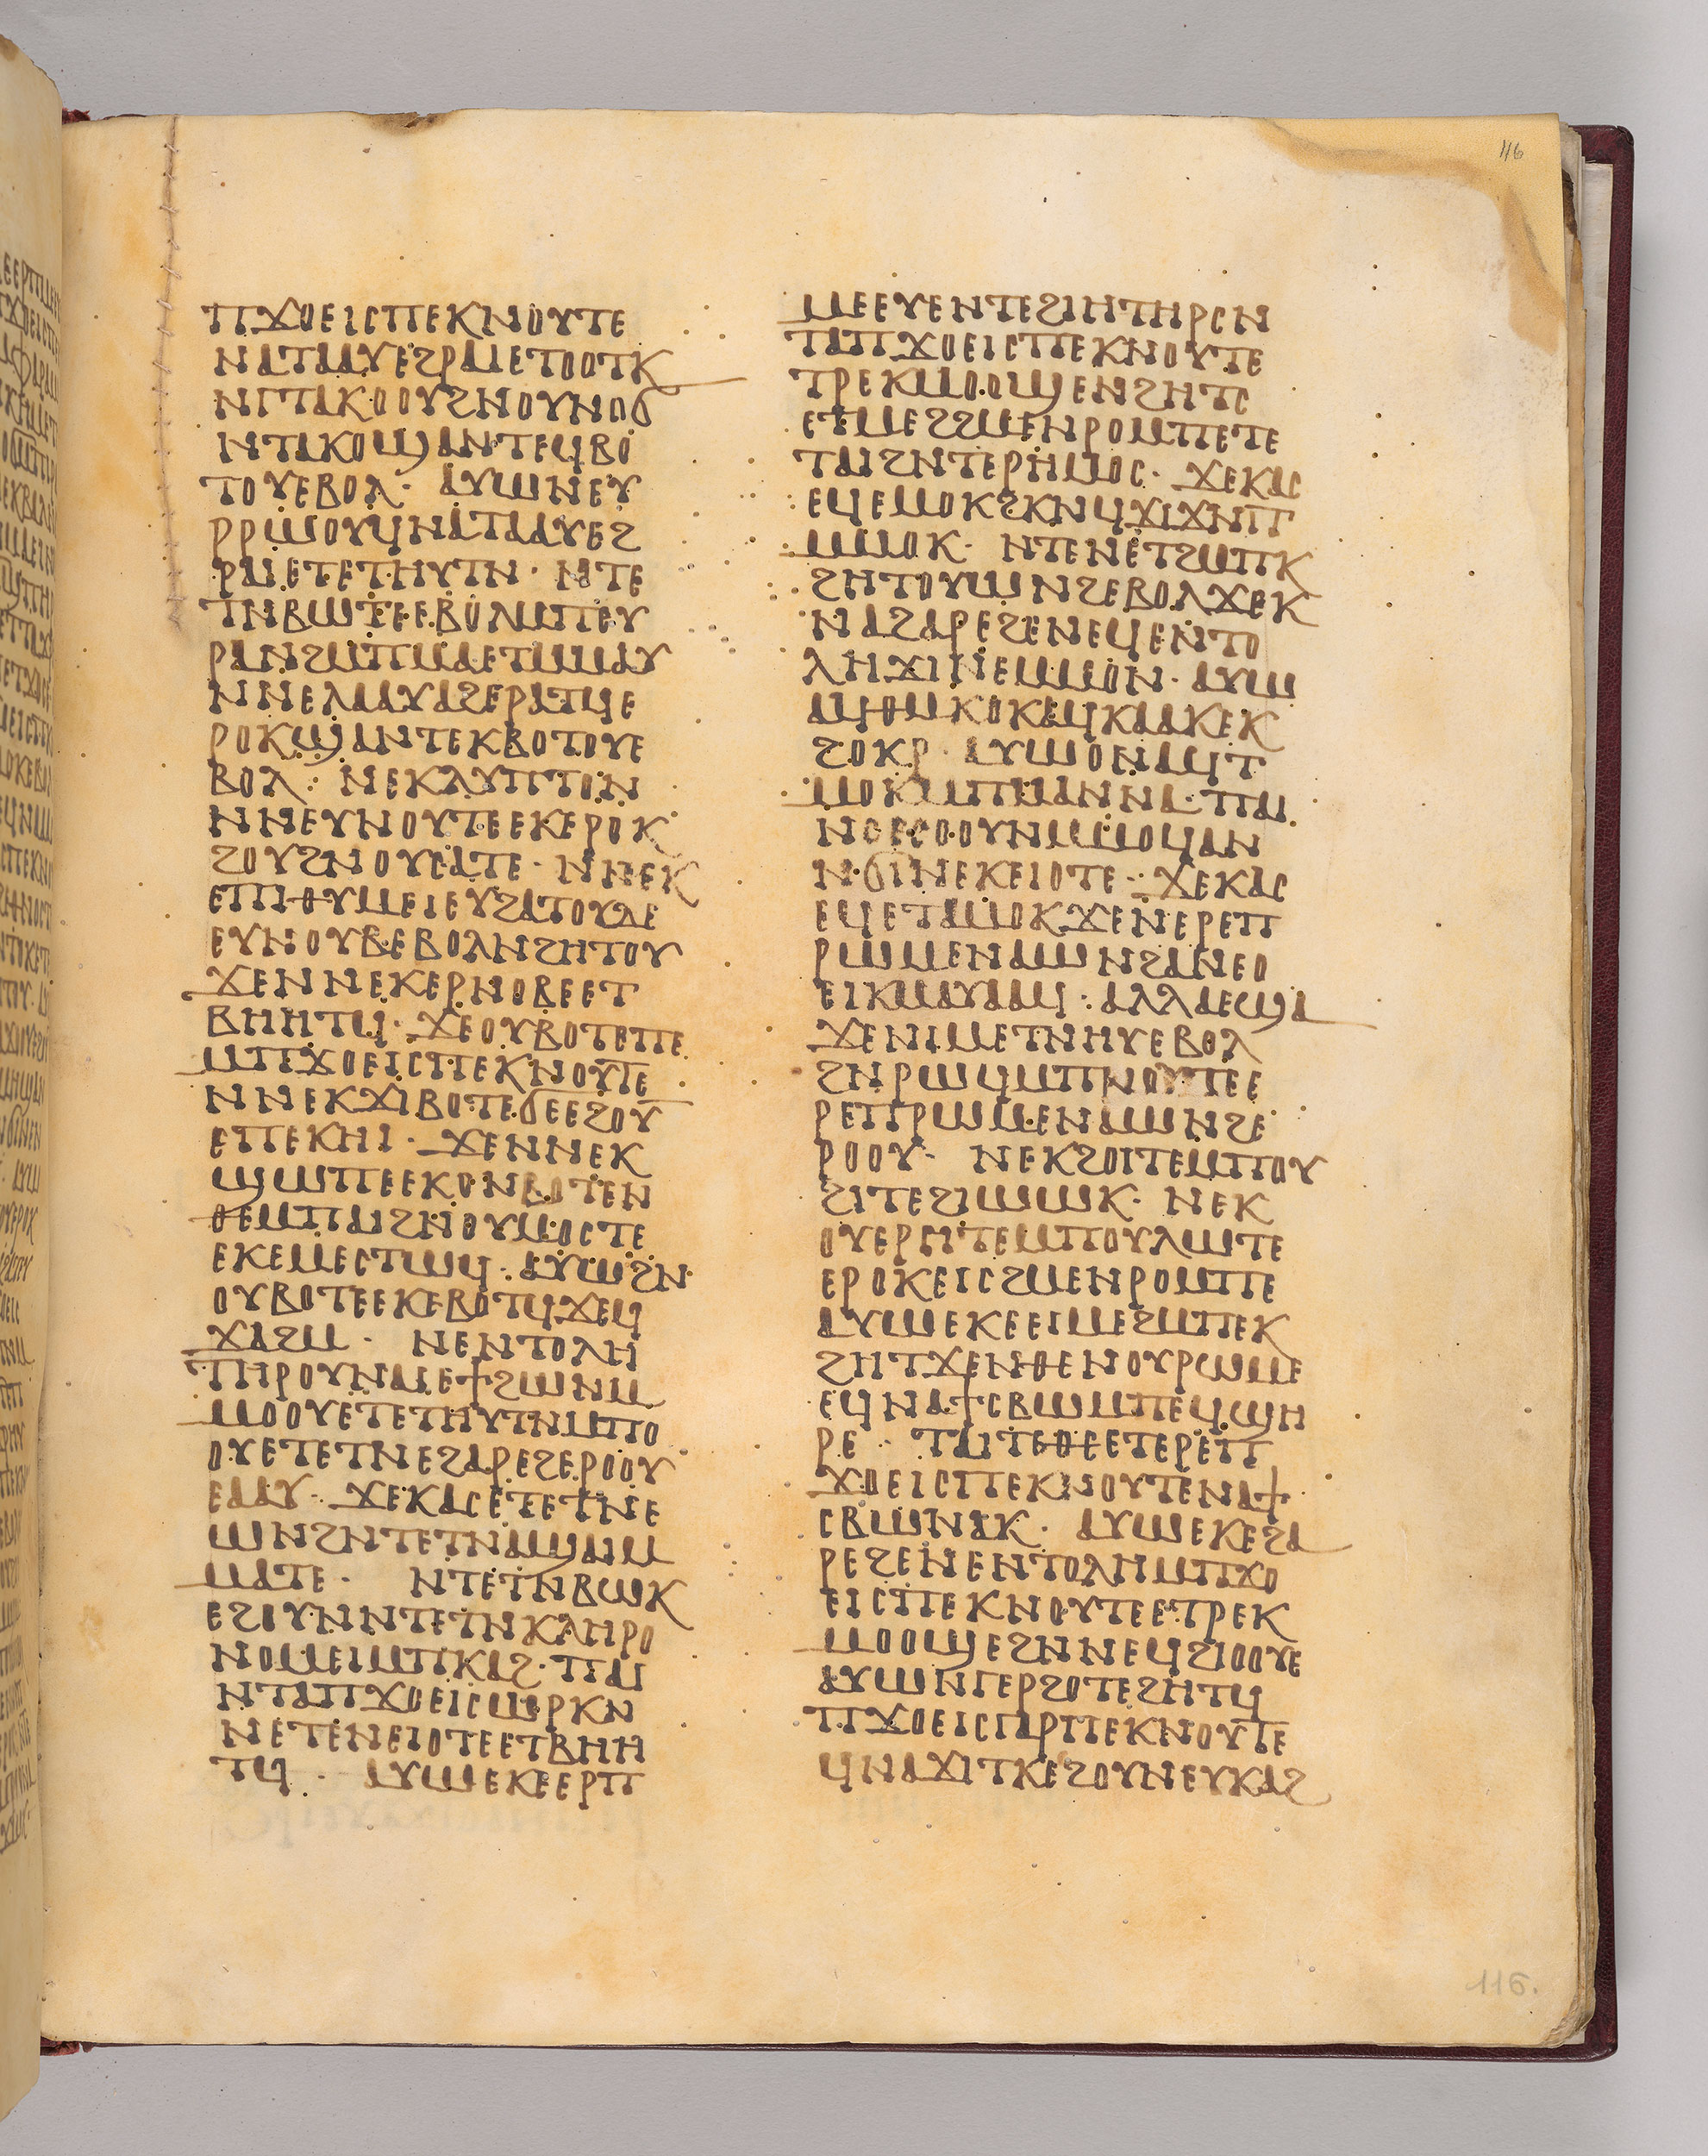 116
ⲡϫⲟⲉⲓⲥⲡⲉⲕⲛⲟⲩⲧⲉ
ⲛⲁⲧⲁⲁⲩⲉϩⲣⲁⲓⲉⲧⲟⲟⲧⲕ
ⲛⲅⲧⲁⲕⲟⲟⲩϩⲛⲟⲩⲛⲟϭ
ⲛⲧⲁⲕⲟϣⲁⲛⲧⲉϥⲃⲟ
ⲧⲟⲩⲉⲃⲟⲗ· ⲁⲩⲱⲛⲉⲩ
ⲣⲣⲱⲟⲩϥⲛⲁⲧⲁⲁⲩⲉϩ
ⲣⲁⲓⲉⲧⲉⲧⲏⲩⲧⲛ· ⲛⲧⲉ
ⲧⲛⲃⲱⲧⲉⲉⲃⲟⲗⲙⲡⲉⲩ
ⲣⲁⲛϩⲙⲡⲙⲁⲉⲧⲙⲙⲁⲩ
ⲛⲛⲉⲗⲁⲁⲩⲁϩⲉⲣⲁⲧϥⲉ
ⲣⲟⲕϣⲁⲛⲧⲉⲕⲃⲟⲧⲟⲩⲉ
ⲃⲟⲗ: ⲛⲉⲕⲗⲩⲡⲧⲟⲛ
ⲛⲛⲉⲩⲛⲟⲩⲧⲉⲉⲕⲉⲣⲟⲕ
ϩⲟⲩϩⲛⲟⲩⲥⲁⲧⲉ· ⲛⲛⲉⲕ
ⲉⲡⲓⲑⲩⲙⲉⲓⲉⲩϩⲁⲧⲟⲩⲇⲉ
ⲉⲩⲛⲟⲩⲃⲉⲃⲟⲗⲛϩⲏⲧⲟⲩ
ϫⲉⲛⲛⲉⲕⲉⲣⲛⲟⲃⲉⲉⲧ
ⲃⲏⲏⲧϥ· ϫⲉⲟⲩⲃⲟⲧⲉⲡⲉ
ⲙⲡϫⲟⲉⲓⲥⲡⲉⲕⲛⲟⲩⲧⲉ
ⲛⲛⲉⲕϫⲓⲃⲟⲧⲉϭⲉⲉϩⲟⲩ
ⲉⲡⲉⲕⲏⲓ· ϫⲉⲛⲛⲉⲕ
ϣⲱⲡⲉⲉⲕⲟⲛⲃⲟⲧⲉⲛ
ⲑⲉⲙⲡⲁⲓϩⲛⲟⲩⲙⲟⲥⲧⲉ
ⲉⲕⲉⲙⲉⲥⲧⲱϥ· ⲁⲩⲱϩⲛ
ⲟⲩⲃⲟⲧⲉⲉⲕⲉⲃⲟⲧϥϫⲉϥ
ϫⲁϩⲙ· ⲛⲉⲛⲧⲟⲗⲏ
ⲧⲏⲣⲟⲩⲛⲁⲓⲉϯϩⲱⲛⲙ
ⲙⲟⲟⲩⲉⲧⲉⲧⲏⲩⲧⲛⲙⲡⲟ
ⲟⲩⲉⲧⲉⲧⲛⲉϩⲁⲣⲉϩⲉⲣⲟⲟⲩ
ⲉⲁⲁⲩ· ϫⲉⲕⲁⲥⲉⲧⲉⲧⲛⲉ
ⲱⲛϩⲛⲧⲉⲧⲛⲁϣⲁⲓⲙ
ⲙⲁⲧⲉ· ⲛⲧⲉⲧⲛⲃⲱⲕ
ⲉϩⲟⲩⲛⲛⲧⲉⲧⲛⲕⲗⲏⲣⲟ
ⲛⲟⲙⲉⲓⲙⲡⲕⲁϩ· ⲡⲁⲓ
ⲛⲧⲁⲡϫⲟⲉⲓⲥⲱⲣⲕⲛ
ⲛⲉⲧⲉⲛⲉⲓⲟⲧⲉⲉⲧⲃⲏⲏ
ⲧϥ· ⲁⲩⲱⲉⲕⲉⲉⲣⲡ
ⲙⲉⲉⲩⲉⲛⲧⲉϩⲓⲏⲧⲏⲣⲥⲛ
ⲧⲁⲡϫⲟⲉⲓⲥⲡⲉⲕⲛⲟⲩⲧⲉ
ⲧⲣⲉⲕⲙⲟⲟϣⲉⲛϩⲏⲧⲥ
ⲉⲧⲙⲉϩϩⲙⲉⲛⲣⲟⲙⲡⲉⲧⲉ
ⲧⲁⲓϩⲛⲧⲉⲣⲏⲙⲟⲥ· ϫⲉⲕⲁⲥ
ⲉϥⲉⲙⲟⲕϩⲕⲛϥϫⲓϫⲛⲧ
ⲙⲙⲟⲕ· ⲛⲧⲉⲛⲉⲧϩⲙⲡⲕ
ϩⲏⲧⲟⲩⲱⲛϩⲉⲃⲟⲗϫⲉⲕ
ⲛⲁϩⲁⲣⲉϩⲉⲛⲉϥⲉⲛⲧⲟ
ⲗⲏϫⲓⲛⲉⲙⲙⲟⲛ· ⲁⲩⲱ
ⲁϥⲑⲙⲕⲟⲕⲁϥⲕⲁⲁⲕⲉⲕ
ϩⲟⲕⲣ· ⲁⲩⲱⲟⲛⲁϥⲧ
ⲙⲟⲕⲙⲡⲙⲁⲛⲛⲁ· ⲡⲁⲓ
ⲛⲥⲉⲥⲟⲟⲩⲛⲙⲙⲟϥⲁⲛ
ⲛϭⲓⲛⲉⲕⲉⲓⲟⲧⲉ· ϫⲉⲕⲁⲥ
ⲉϥⲉⲧⲁⲙⲟⲕϫⲉⲛⲉⲣⲉⲡ
ⲣⲱⲙⲉⲛⲁⲱⲛϩⲁⲛⲉⲟ
ⲉⲓⲕⲙⲁⲩⲁⲁϥ: ⲁⲗⲗⲁⲉϣⲁ
ϫⲉⲛⲓⲙⲉⲧⲛⲏⲩⲉⲃⲟⲗ
ϩⲛⲣⲱϥⲙⲡⲛⲟⲩⲧⲉⲉ
ⲣⲉⲡⲣⲱⲙⲉⲛⲁⲱⲛϩⲉ
ⲣⲟⲟⲩ· ⲛⲉⲕϩⲟⲓⲧⲉⲙⲡⲟⲩ
ϩⲓⲧⲉϩⲓⲱⲱⲕ· ⲛⲉⲕ
ⲟⲩⲉⲣⲏⲧⲉⲙⲡⲟⲩⲗⲱⲧⲉ
ⲉⲣⲟⲕⲉⲓⲥϩⲙⲉⲛⲣⲟⲙⲡⲉ
ⲁⲩⲱⲉⲕⲉⲉⲓⲙⲉϩⲙⲡⲉⲕ
ϩⲏⲧϫⲉⲛⲑⲉⲛⲟⲩⲣⲱⲙⲉ
ⲉϥⲛⲁϯⲥⲃⲱⲙⲡⲉϥϣⲏ
ⲣⲉ· ⲧⲁⲓⲧⲉⲑⲉⲉⲧⲉⲣⲉⲡ
ϫⲟⲉⲓⲥⲡⲉⲕⲛⲟⲩⲧⲉⲛⲁϯ
ⲥⲃⲱⲛⲁⲕ· ⲁⲩⲱⲉⲕⲉϩⲁ
ⲣⲉϩⲉⲛⲉⲛⲧⲟⲗⲏⲙⲡϫⲟ
ⲉⲓⲥⲡⲉⲕⲛⲟⲩⲧⲉⲉⲧⲣⲉⲕ
ⲙⲟⲟϣⲉϩⲛⲛⲉϥϩⲓⲟⲟⲩⲉ
ⲁⲩⲱⲛⲅⲉⲣϩⲟⲧⲉϩⲏⲧϥ
ⲡϫⲟⲉⲓⲥⲅⲁⲣⲡⲉⲕⲛⲟⲩⲧⲉ
ϥⲛⲁϫⲓⲧⲕⲉϩⲟⲩⲛⲉⲩⲕⲁϩ
116.